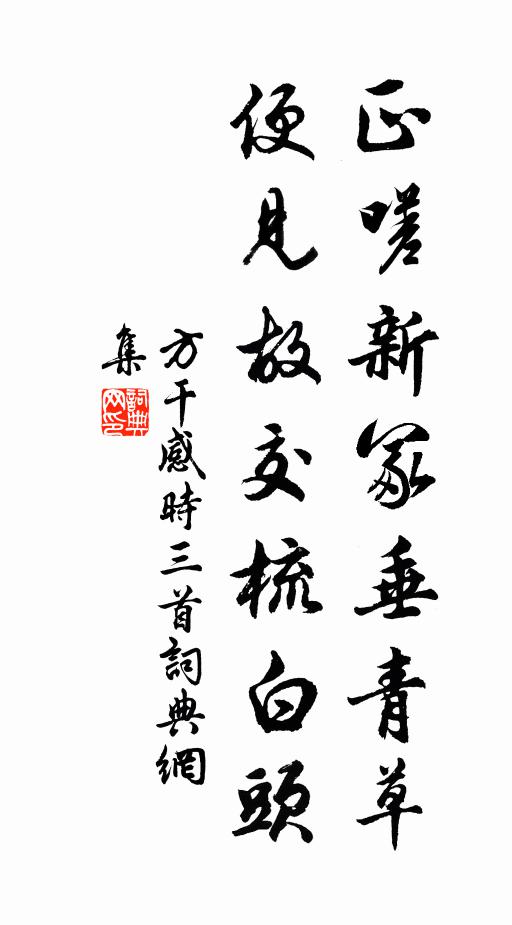 正嗟新冢垂青草
便見故交梳白頭
方干感時三首詞典網
集
詞典
网印